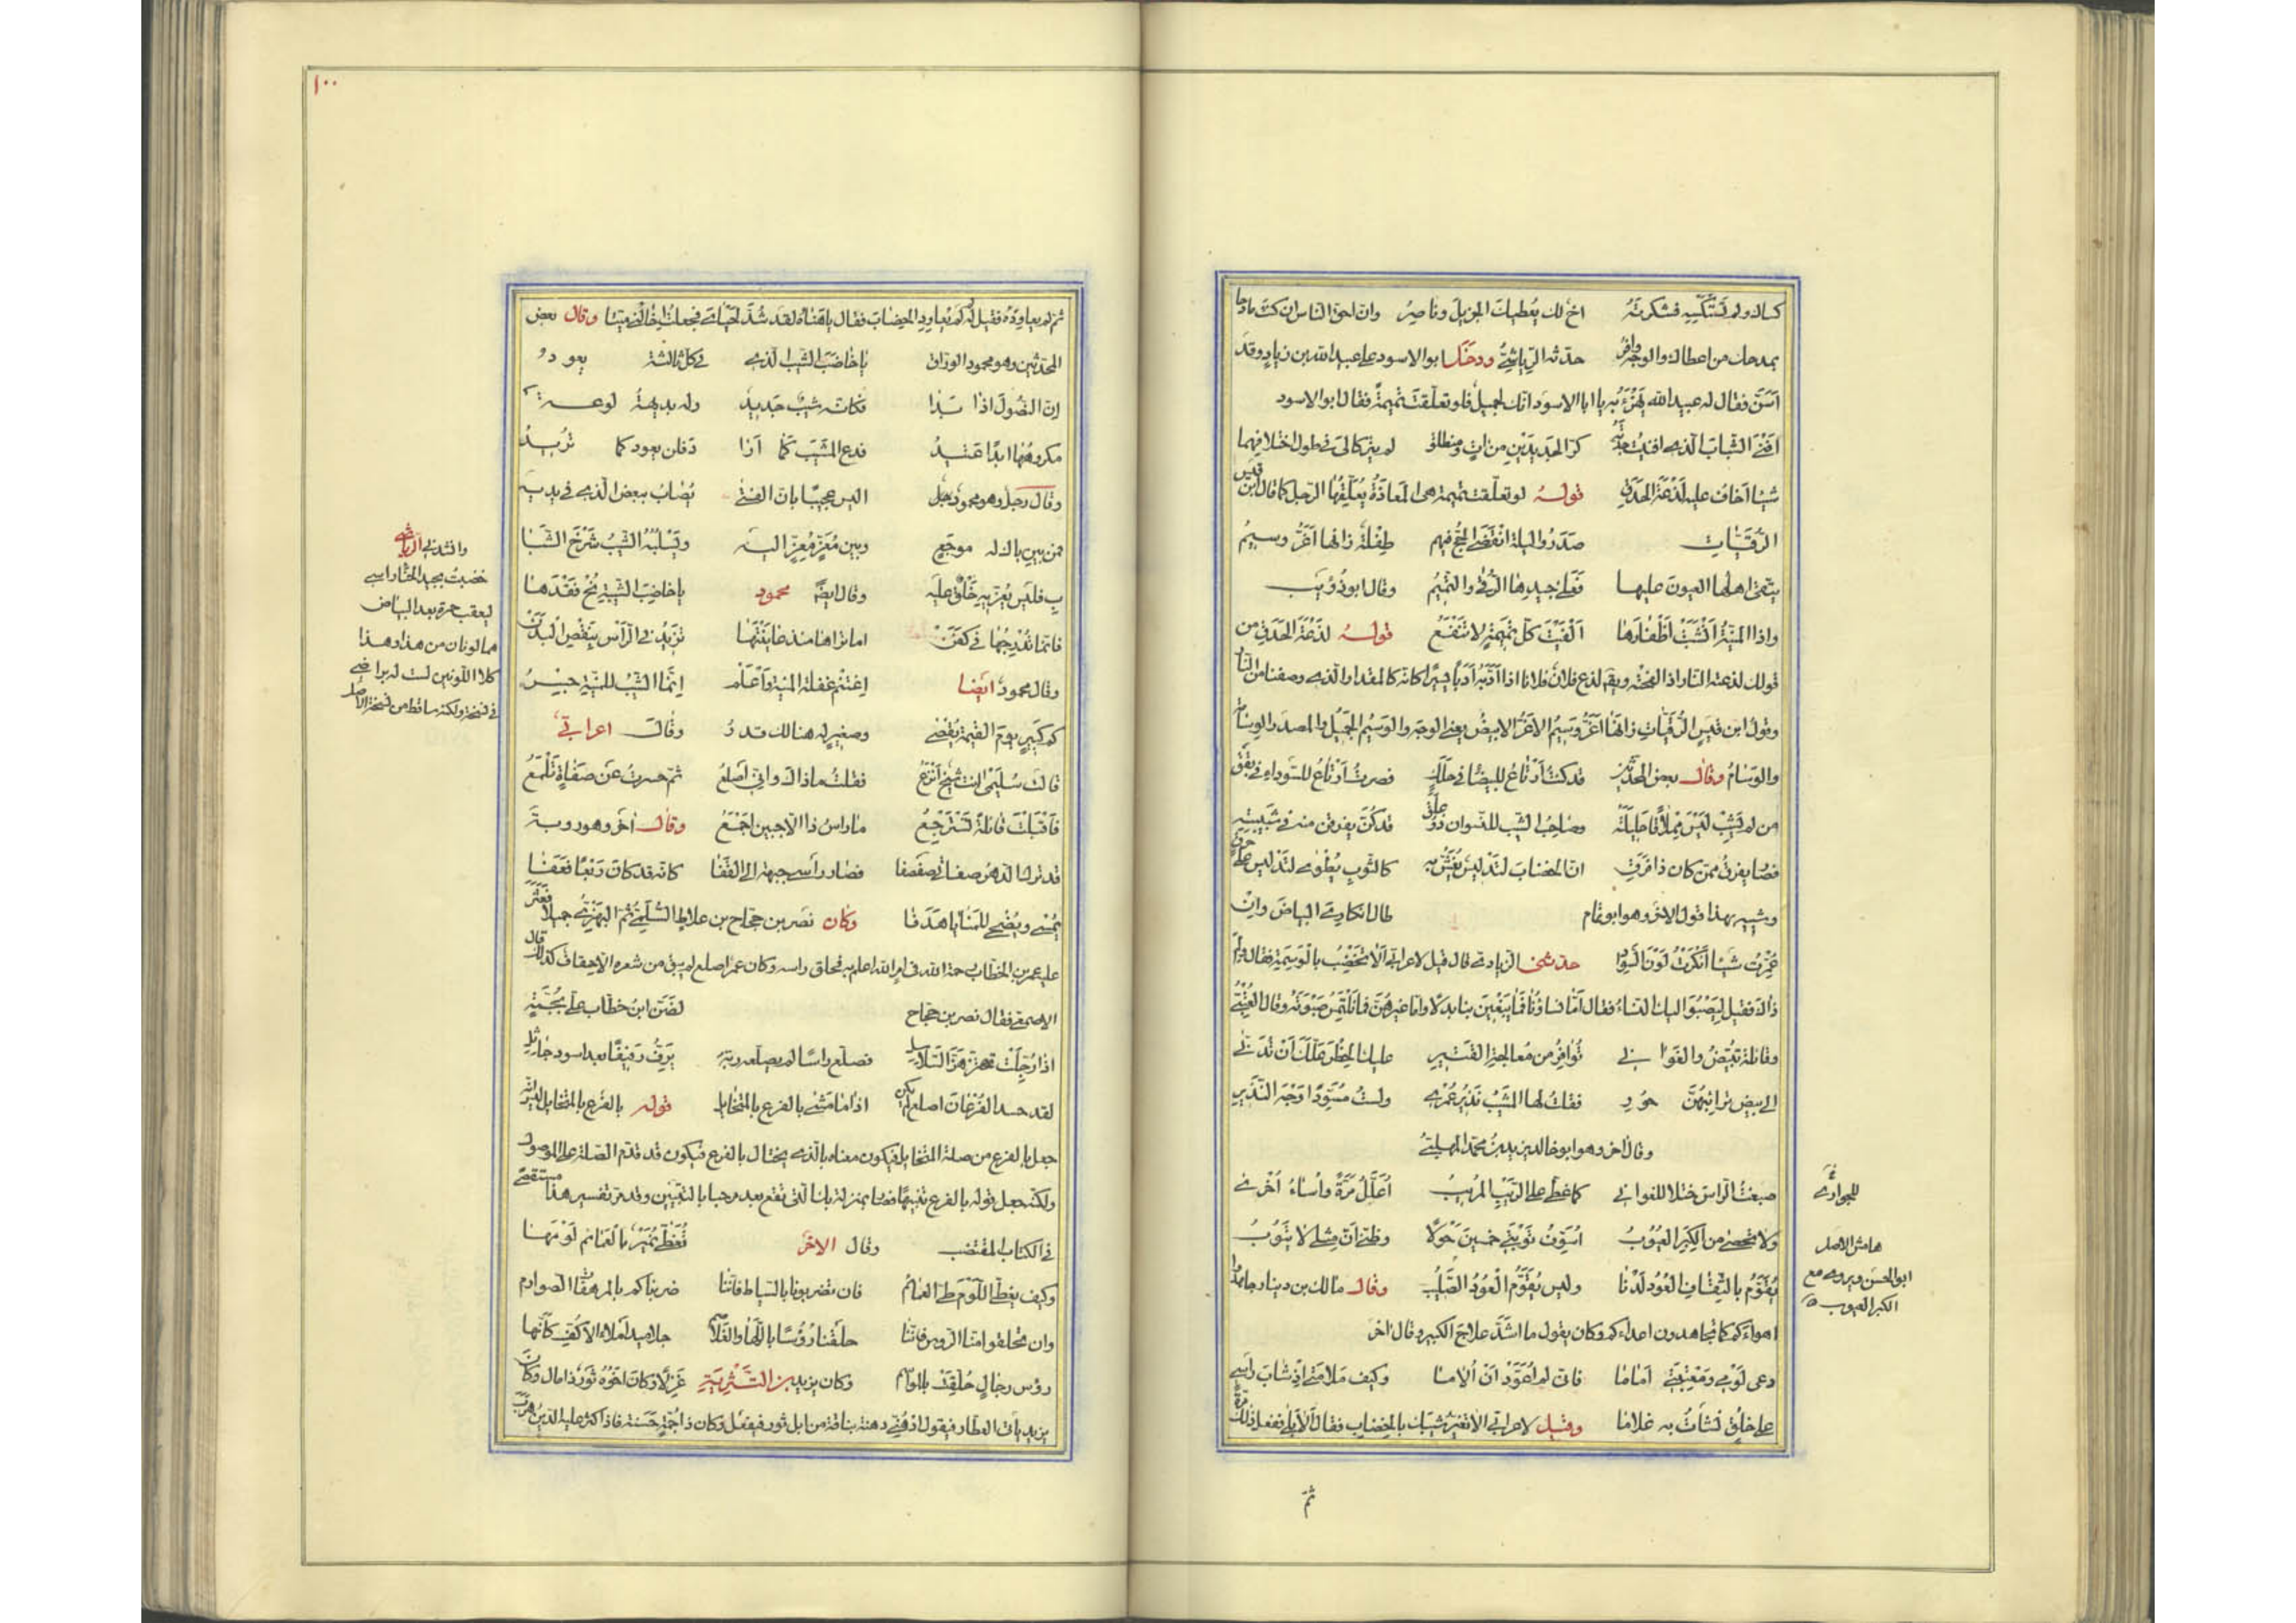 كساك ولم تستكسه فشكرته اخ لك يعطيك الجزيل وناصر وان احق الناس ان كنت مادحا
بمدحك من اعطاك والوجه وافر حدثنيه الرياشي ودخل ابو الاسود على عبيد الله بن زياد وقد
اسن فقال له عبيد الله يهزء به يا ابا الاسود انك لجميل فلو تعلقت تميمة فقال ابو الاسود
افنى الشباب الذي افنيت جدته كر الجديدين من ات ومنطلق لم يتركا لي في طول اختلافهما
شيئا اخاف عليه لذعة الحدق قوله لو تعلقت تميمة هي المعاذة يعلقها الرجل كما قال ابن قيس
الرقيات صدروا ليلة انقضى الحج فيهم طفلة زانها اغر وسيم
يتقى اهلها العيون عليها فعلى جيدها الرقى والتميم وقال ابو ذؤيب
واذا المنية انشبت اظفارها الفيت كل تميمة لا تنفع قوله لذعة الحدق من
قولك لذعته النار اذا لفحته ويقال لذع فلان فلانا اذا ادبه ادبا يسيرا كانه كالمقدار الذي وصفنا من النار
وقول ابن قيس الرقيات زانها اغر وسيم الاغر الابيض يعني الوجه والوسيم الجميل والمصدر الوسامة
والوسام وقال بعض المحدثين قد كنت ارتاع للبيضاء في حلك فصرت ارتاع للسوداء في يقق
من لم يشب ليس مملاقا حليلته وصاحب الشيب للنسوان ذو ملق قد كن يفرقن منه في شبيبته
فصار يفرق ممن كان ذا فرق ان الخضاب لتدليس يغش به كالثوب يطوى لتدليس على حرق
وشبيه بهذا قول الاخر وهو ابو تمام طال انكاري البياض وان
عمرت شيئا انكرت لون السواد حدثني الزيادي قال قيل لاعرابي الا تخضب بالوسمة فقال ولم
ذاك فقيل ليصبو اليك النساء فقال اما نساؤنا فما يبغين بنا بدلا واما غيرهن فما نلتمس صبوته وقال العتبي
وقائلة تبيض والغوا ني نوافر من معالجة القتير عليك الخطر علك ان تدني
الى بيض ترائبهن حور فقلت لها المشيب نذير عمري ولست مسودا وجه النذير
وقال اخر وهو ابو خالد يزيد بن محمد المهلبي
صبغت الراس ختلا للغواني كما غطى على الريب المريب اعلل مرة واساء اخرى
ولا تحصى من الكبر العيوب اسوف توبتي خمسين حولا وظني ان مثلي لا يتوب
يقوم بالثقاف العود لدنا وليس يقوم العود الصليب وقال مالك بن دينار جاهدوا
اهواءكم كما تجاهدون اعداءكم وكان يقول ما اشد علاج الكبير وقال اخر
دعى لومى ومعتبتي اماما فانى لم اعود ان الاما وكيف ملامتى اذ شاب راسى
على خلق نشات به غلاما وقيل لاعرابي الا تغير شيبك بالخضاب فقال الا بلى ففعل ذلك مرة
للجوارى
هامش الاصل
ابو الحسن ويروى مع
الكبر العيوب
ثم
١٠٠
ثم لم يعاوده فقيل له لم لم تعاود الخضاب فقال يا هناه لقد شد لحياى فجعلت اخالنى ميتا وقال بعض
المحدثين وهو محمود الوراق يا خاضب الشيب الذى فى كل ثالثة يعود
ان النصول اذا بدا فكانه شيب جديد وله بديهة لوعة
مكروهها ابدا عتيد فدع المشيب كما ارا د فلن يعود كما تريد
وقال رجل وهو محمود رجل اليس عجيبا بان الفتى يصاب ببعض الذى فى يديه
فمن بين باك له موجع وبين معز مغز اليه ويسلبه الشيب شرخ الشبا
ب فليس يعزيه خلق عليه وقال ايضا محمود يا خاضب الشيبة نح فقدها
فانما تدرجها فى كفن اما تراها منذ عاينتها تزيد فى الراس بنقص البدن
وقال محمود ايضا اغتنم غفلة المنية واعلم انما الشيب للمنية جسر
كم كبير يوم القيمة يقضى وصغير له هنالك قدر وقال اعرابى
قالت سليمى انت شيخ انزع فقلت ما ذاك وانى اصلع ثم حسرت عن صفاة تلمع
فاقبلت قائلة تسترجع ما راس ذا الا جبين اجمع وقال اخر وهو روبة
قد ترك الدهر صفاتى صفصفا فصار راسى جبهة الى القفا كانه قد كان ربعا فعفا
يمسى ويضحى للمنايا هدفا وكان نصر بن حجاج بن علاط السلمى ثم البهزى جميلا فعثر
عليه عمر بن الخطاب رحمه الله فى امر الله اعلم به فحلق راسه وكان عمر اصلع لم يبق من شعره الا حفاف كذلك قال
الاصمعى فقال نصر بن حجاج لضن ابن خطاب على بجمة
اذا رجلت تهتز هز السلاسل فصلع راسا لم يصلعه ربه يرف رفيفا بعد اسود جاثل
لقد حسد الفرعان اصلع لم يكن اذا ما مشى بالفرع بالمتخايل قوله بالفرع بالمتخايل ليس انه
جعل بالفرع من صلة المتخايل فيكون معناه بالذى يختال بالفرع فيكون قد قدم الصلة على الموصول
ولكنه جعل قوله بالفرع تبيينا فصار بمنزلة بك التى تقع بعد مرحبا بالتبيين وقد مر تفسير هذا مستقصى
فى الكتاب المقتضب وقال الاخر تغطى نمير بالعمائم لومها
وكيف يغطى اللوم طى العمائم فان تضربونا بالسياط فاننا ضربناكم بالمرهفات الصوارم
وان تحلقوا منا الروس فاننا حلقنا رؤسا باللها والغلاصم جلاميد املاء الاكف كانها
رؤس رجال حلقت بالمواسم وكان يزيد بن الطثرية غزلا وكان اخوه ثور ذا مال وكان
يزيد ياتى العطار فيقول ادهنى دهنة بناقة من ابل ثور فيفعل وكان ذا جمة حسنة فاذا كثر عليه الدين هرب
وانشدنى الرياشى
خضبت بجيد الحناء راسى
ليعقب حمرة بعد البياض
هما لونان من هذا وهذا
كلا اللونين لست له براضى
فى نسخة ولكنه ساقط من نسخة الاصل